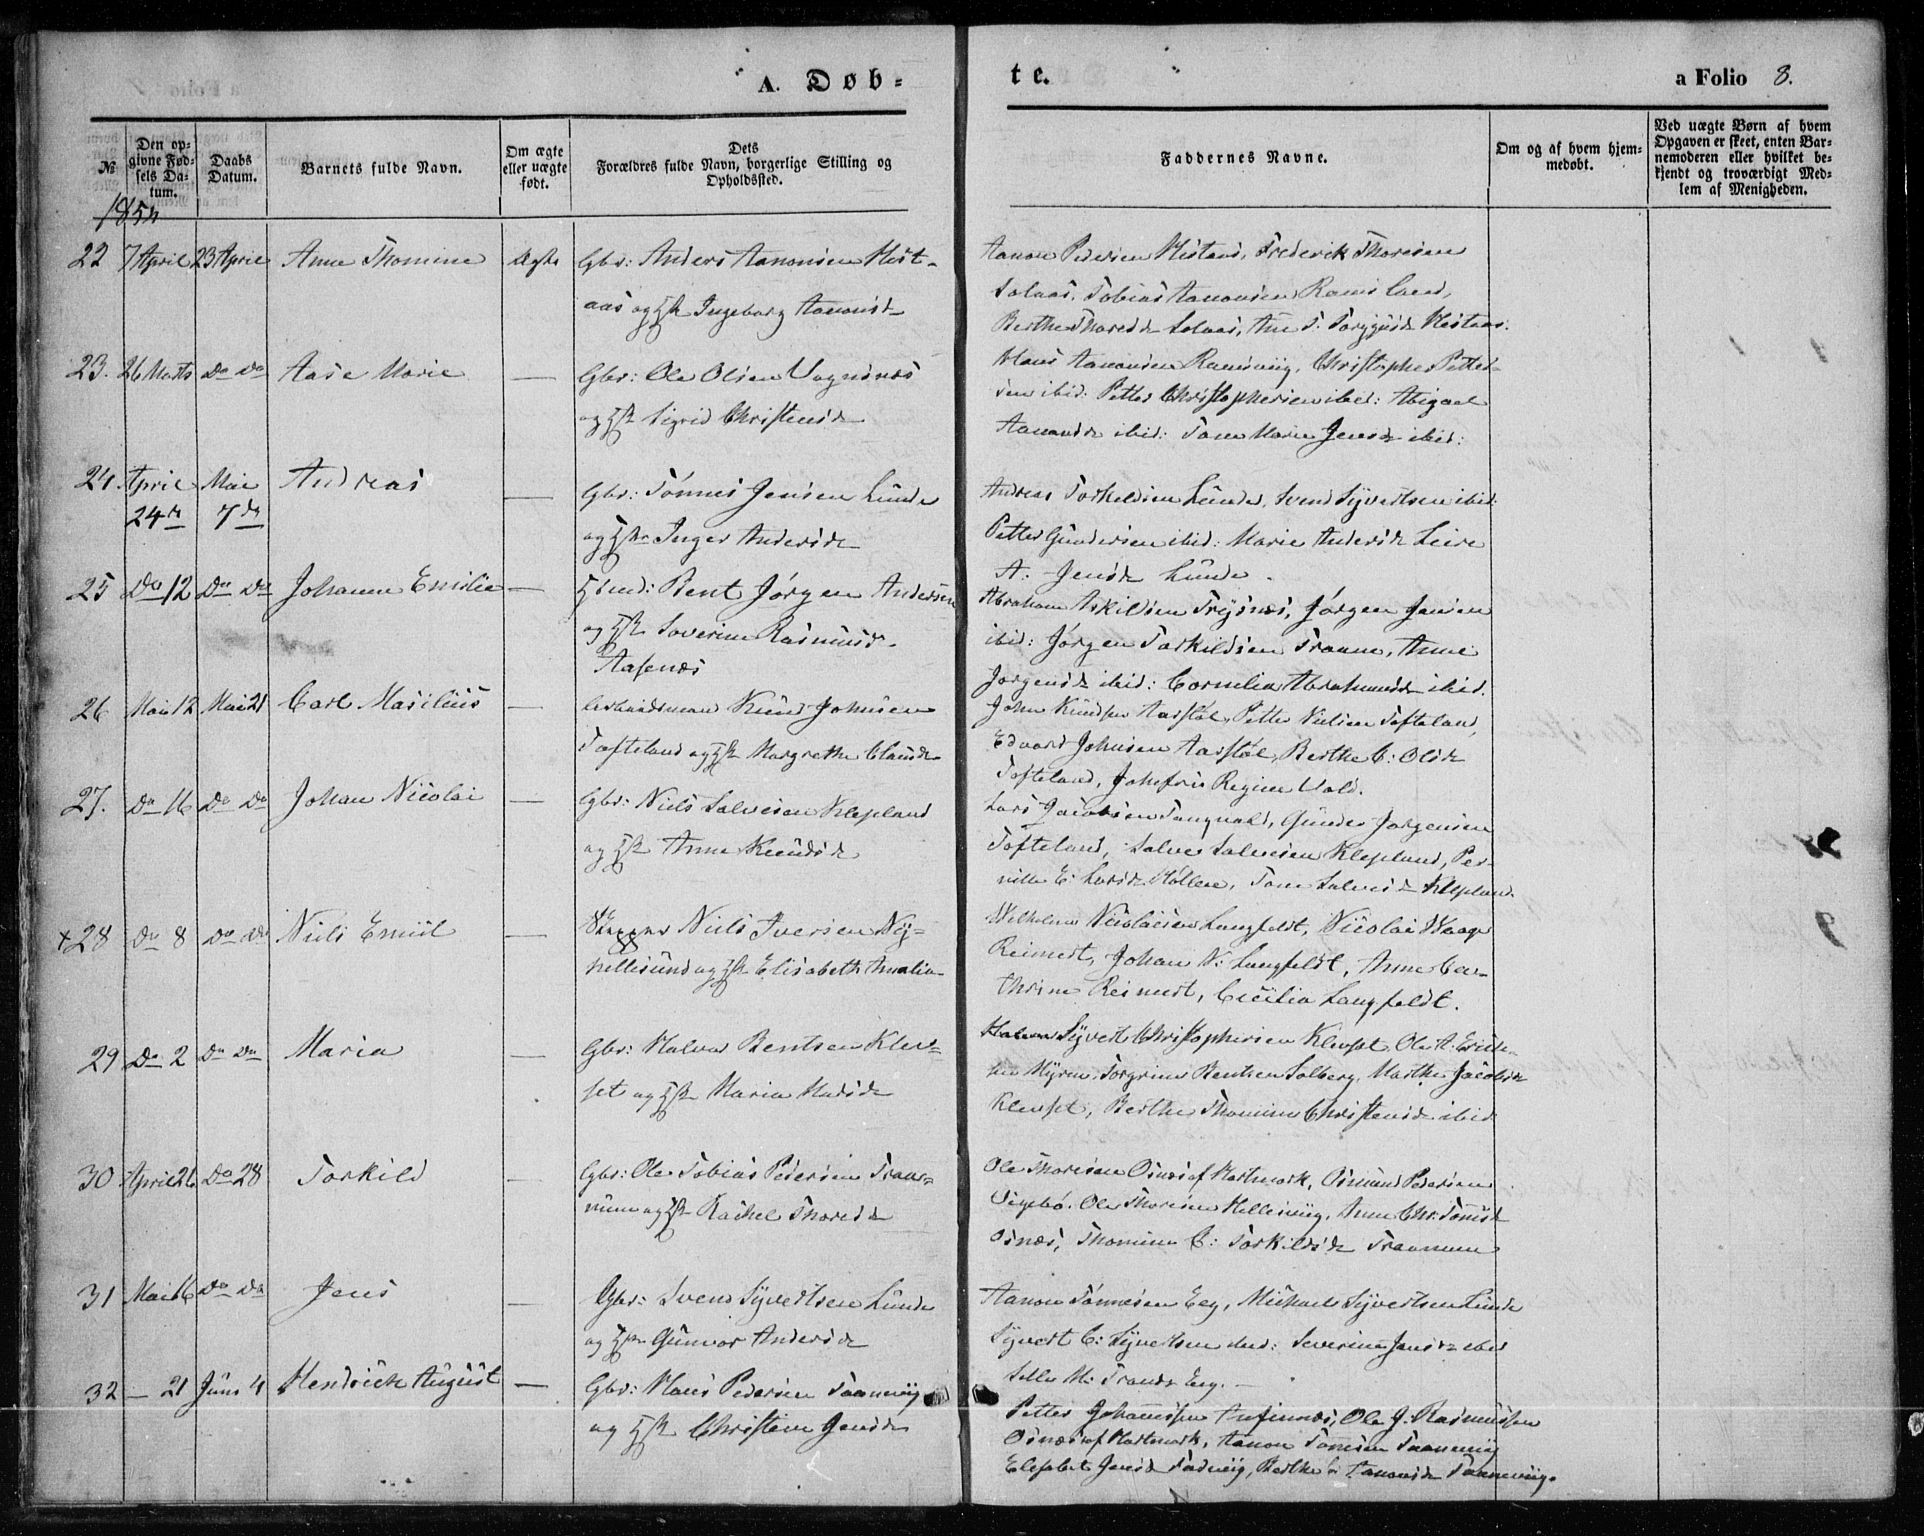 A. Døb-
te.
a Folio 8.
№
Den op-
givne Fød-
sels Da-
tum.
Daabs
Datum.
Barnets fulde Navn.
Om ægte
eller uægte
født.
Dets
Forældres fulde Navn, borgerlige Stilling og
Opholdssted.
Faddernes Navne.
Om og af hvem hjem-
medøbt.
Ved uægte Børn af hvem
Opgaven er skeet, enten Bar-
nemoderen eller hvilket be-
kjendt og troværdigt Med-
lem af Menigheden.
1854
22 7 April 23 April Anne Thomine Ægte Gbr: Anders Aanonsen Hest-
aas og Hst Ingeborg Aanonsd
Aanon Pedersen Hestaas, Frederik Thoresen
Solaas, Tobias Aanonsen Ramsland,
Berthe Thoresd Solaas, Ane T. Hestaas.
23. 26 Marts Do Do Aase Marie — Gbr: Ole Olsen Vognsnæs
og Hst Sigrid Christensd
Hans Aanonsen Ramsviig, Christopher Petter-
sen ibid: Petter Christophersen ibid: Abigael
Aanonsd ibid: Tone Marie Jensd ibid:
24. April 24de Mai 7de Andreas — Gbr: Tönnes Jensen Lunde
og Hst Inger Andersd
Andreas Torkeldsen Lunde, Svend Syvertsen ibid:
Petter Gundersen ibid: Marie Andersd Leire
A: Jensd Lunde.
25 Do 12 Do Do Johanne Emilie — Hbmd: Bent Jørgen Andersen
og Hst Severine Rasmusd.
Aasnæs
Abraham Askildsen Trysnæs, Jørgen Jensen
ibid: Jørgen Torkildsen Traane, Anne
Jørgensd ibid: Cornelia Abrahamsd ibid.
26 Mai 12 Mai 21 Carl Masilius — Arbeidsmand Knud Johnsen
Tofteland og Hst Margrethe Clausd
John Knudsen Aarstøl, Petter Nielsen Tofteland,
Edvard Johnsen Aarstøl, Berthe C: Olsd
Tofteland, Josefine Regine Vold.
27. Do 16 Do Do Johan Nicolai — Gbr: Niels Salvesen Klepland
og Hst Anne Knudsd
Lars Jacobsen Tangvald, Gunder Jørgensen
Tofteland, Salve Salvesen Klepland, Per-
nille E: Larsd Höllen, Tone Salvesd Klepland
+28 Do 8 Do Do Niels Emil — Niels Iversen Ny-
hellesund og Hst Elisabeth Amalia
Wilhelm Nicolaisen Langfeldt, Nicolai Waage
Reimert, Johan N: Langfeldt, Anne Ca-
thrine Reimert, Cecilia Langfeldt.
29 Do 2 Do Do Maria — Gbr: Halvor Bentsen Klev-
set og Hst Maria Madsd
Syvert Christophersen Klevset, Ole A: Erik-
sen Myren, Torgrim Bentsen Solberg, Marthe Jacobsd
Klevset, Berthe Thomine Christensd ibid
30 April 26 Do 28 Torkild — Gbr: Ole Tobias Pedersen Traane-
rum og Hst Rachel Thoresd
Ole Thoresen Osnæs af Hartmark, Osmund Pedersen
Ole Thoresen Helleviig, Anne Chr: Tönnesd
Osnæs, Thomine C: Torkildsd
31 Mai 16 Do Do Jens — Gbr: Svend Syvertsen Lunde
og Hst Gunvor Andersd
Aanon Tönnesen Eeg, Michael Syvertsen Lunde
Syvert C: Syvertsen ibid: Severine Jensd ibid
Sille M: Eeg. —
32 — 21 Juni 4 Hendrich August — Gbr: Hans Pedersen Taaneviig
og Hst Christine Jensd
Petter Johannesen Ole J. Rasmussen
Osnæs af Hartmark, Aanon Tönnesen Taaneviig
Elisabet Jensd Berthe Aanonsd Taaneviig.